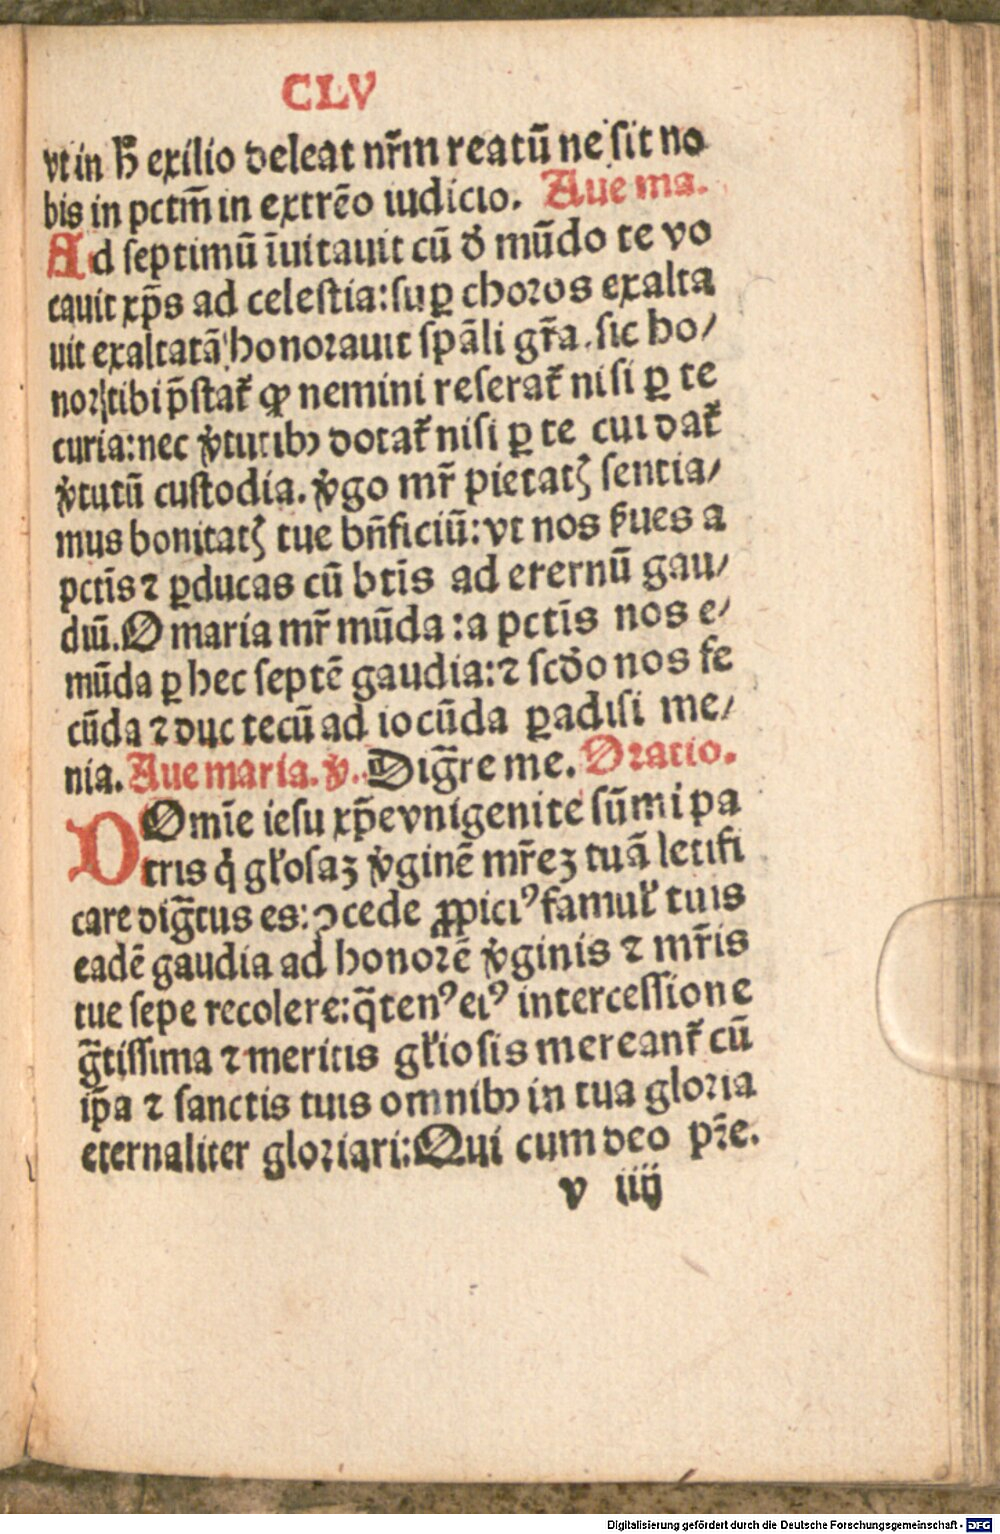 CLV
vt in ħ exilio deleat nr̄m reatū ne sit no
bis in pctm̄ in extrēo iudicio. Aue ma.
Ad septimū īuitauit cū đ mūdo te vo
cauit xp̄s ad celestia: suꝑ choros exalta
uit exaltatā honorauit spāli gr̄a. sic ho/
norꝭ tibi p̄stat̄ ꝙ nemini reserat̄ nisi ꝑ te
curia: nec v̓tutibꝫ dotat̄ nisi ꝑ te cui dat̄
v̓tutū custodia. v̓go mr̄ pietatꝭ sentia/
mus bonitatꝭ tue bn̄ficiū: vt nos ẜues a
pctīs ⁊ ꝑducas cū btīs ad eternū gau/
diū. O maria mr̄ mūda : a pctīs nos e/
mūda ꝑ hec septē gaudia: ⁊ scđo nos fe
cūda ⁊ duc tecū ad iocūda ꝑadisi me/
nia. Aue maria. v̓. Diḡre me. Oratio.
DOmīe iesu xp̄e vnigenite sūmi pa
tris q̇ gl̄osaꝫ v̓ginē mr̄eꝫ tuā letifi
care diḡtus es: ꝯcede ꝓpiciꝰ famul̄ tuis
eadē gaudia ad honorē v̓ginis ⁊ mr̄is
tue sepe recolere: q̄tenꝰ eiꝰ intercessione
ḡtissima ⁊ meritis gl̄iosis mereant̄ cū
ip̄a ⁊ sanctis tuis omnibꝫ in tua gloria
eternaliter gloriari: Qui cum deo pr̄e.
v iiij
Digitalisierung gefördert durch die Deutsche Forschungsgemeinschaft - DFG